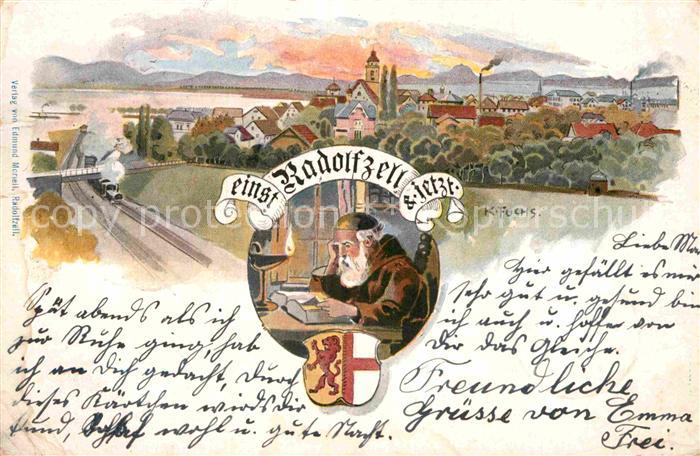 Verlag von Edmund Mornell, Radolfzell.
einst Radolfzell & jetzt.
K. FUCHS.
Spät abends als ich
zur Ruhe ging, hab
ich an dich gedacht, Durch
dieses Kärtchen wirds dir
kund, Schlaf wohl u. gute Nacht.
Liebe
Hier gefällt es mir
sehr gut u. gesund bin
ich auch u. hoffe von
Dir das Gleiche.
Freundliche
Grüsse von Emma
Frei.